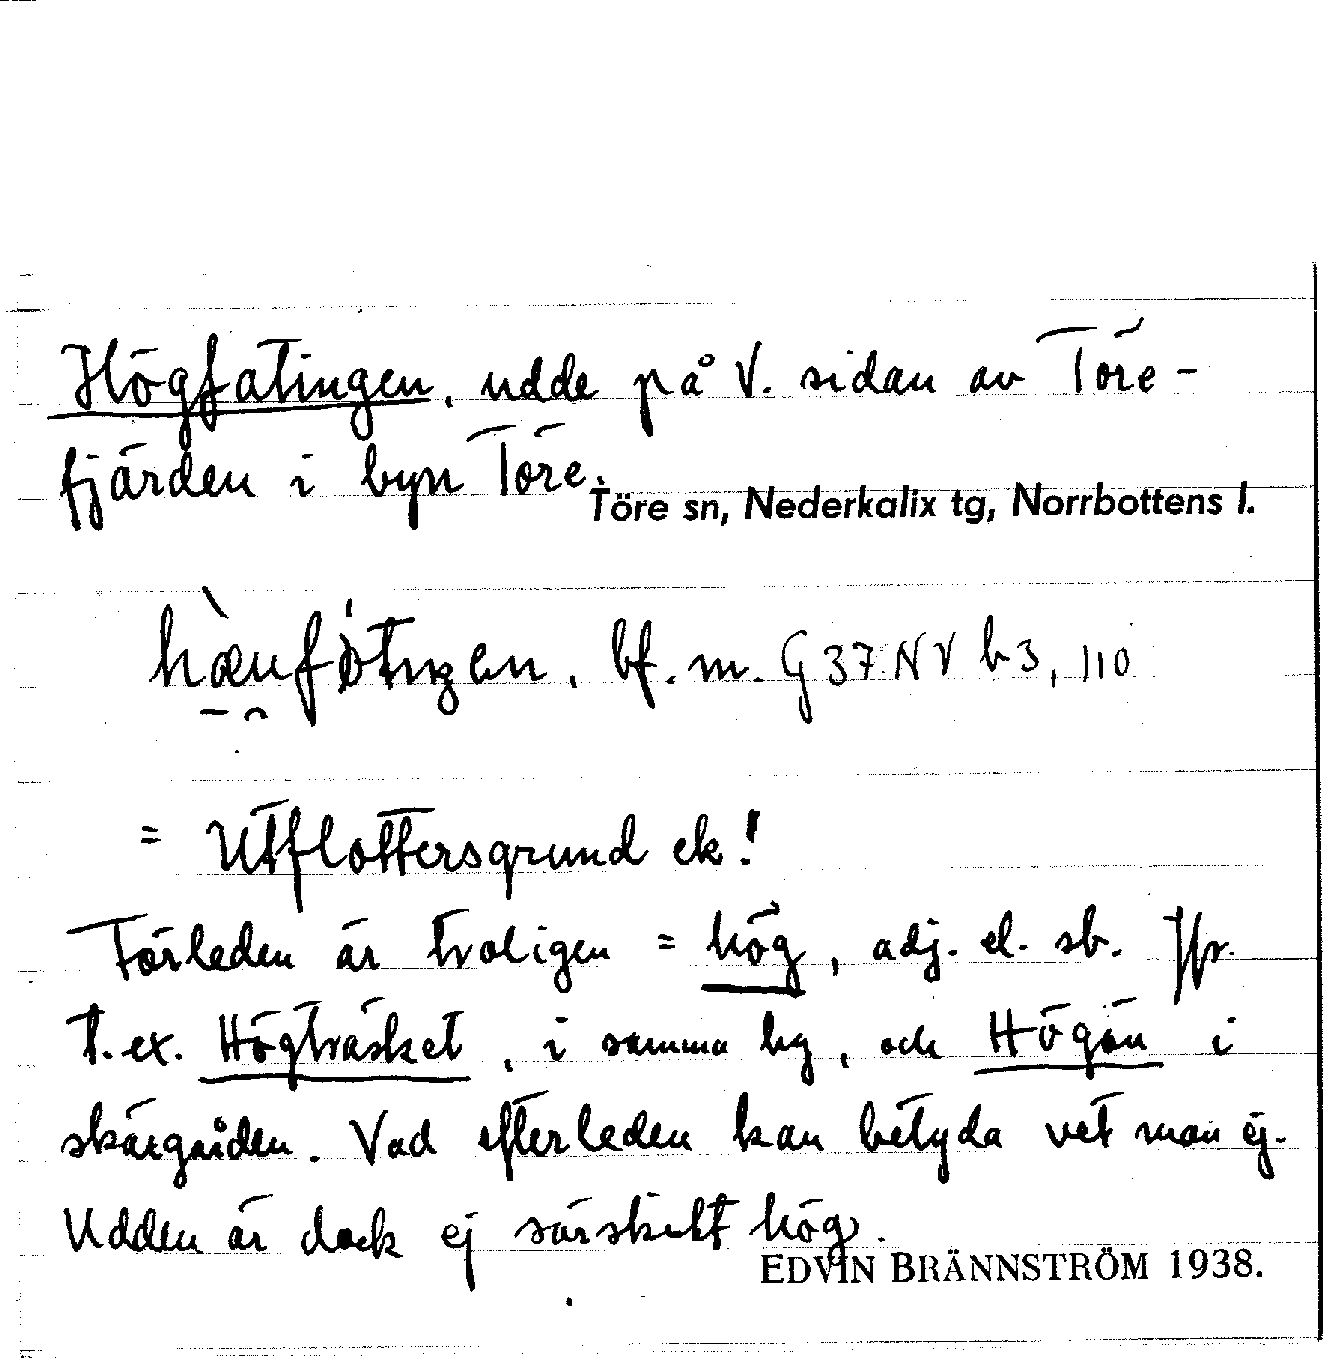 Högfatingen, udde på V. sidan av Töre-
fjärden i byn Töre.
Töre sn, Nederkalix tg, Norrbottens l.
bf. m. G 37 NV b 3, 110
= Utflottersgrund ek!
Förleden är troligen = hög, adj. el. sb. Jfr.
t.ex. Högträsket, i samma by, och Högön i
skärgården. Vad efterleden kan betyda vet man ej.
Udden är dock ej särskilt hög.
EDVIN BRÄNNSTRÖM 1938.